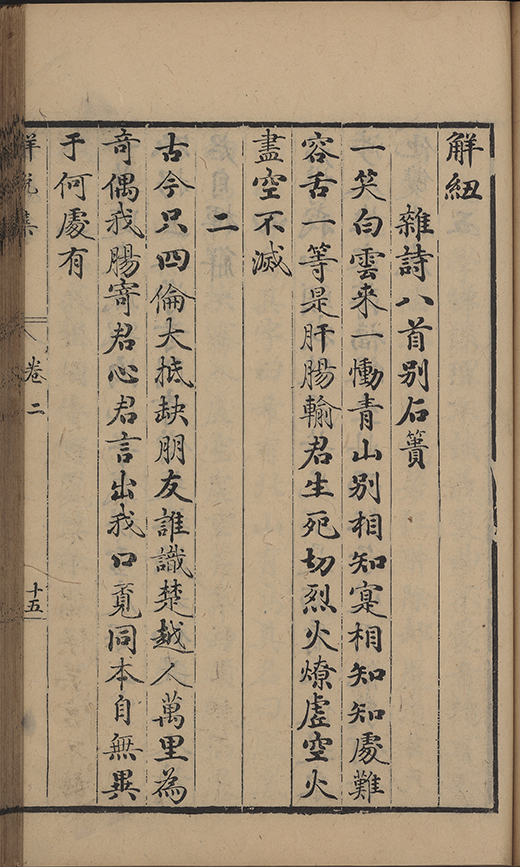 解紐
雜詩八首別石簣
一笑白雲來一慟青山別相知寔相知知處難
容舌一等是肝腸輸君生死切烈火燎虛空火
盡空不滅
二
古今只四倫大抵缺朋友誰識楚越人萬里為
奇偶我腸寄君心君言出我口覔同本自無異
于何處有
解脫集
卷二
十五